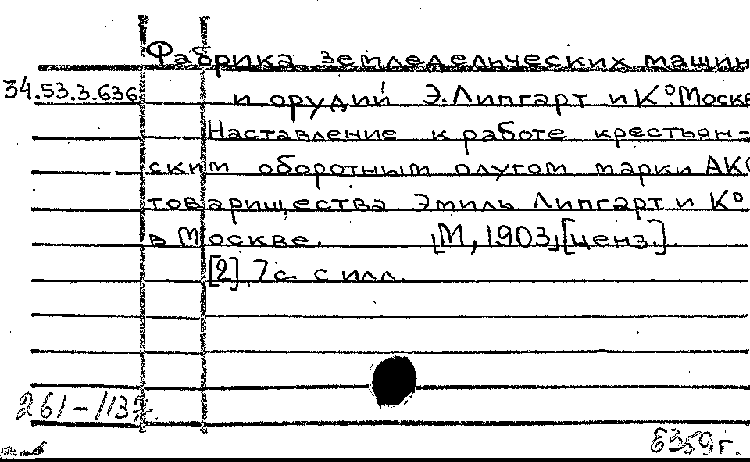 Фабрика земледельческих машин
34.53.3.636 и орудий Э.Липгарт и Ко. Москв
Наставление к работе крестьян-
ским оборотным плугом марки АКО
товарищества Эмиль Липгарт и Ко
в Москве. [М, 1903] [ценз.].
[2], 7 с. с илл.
261-113
6359 г.